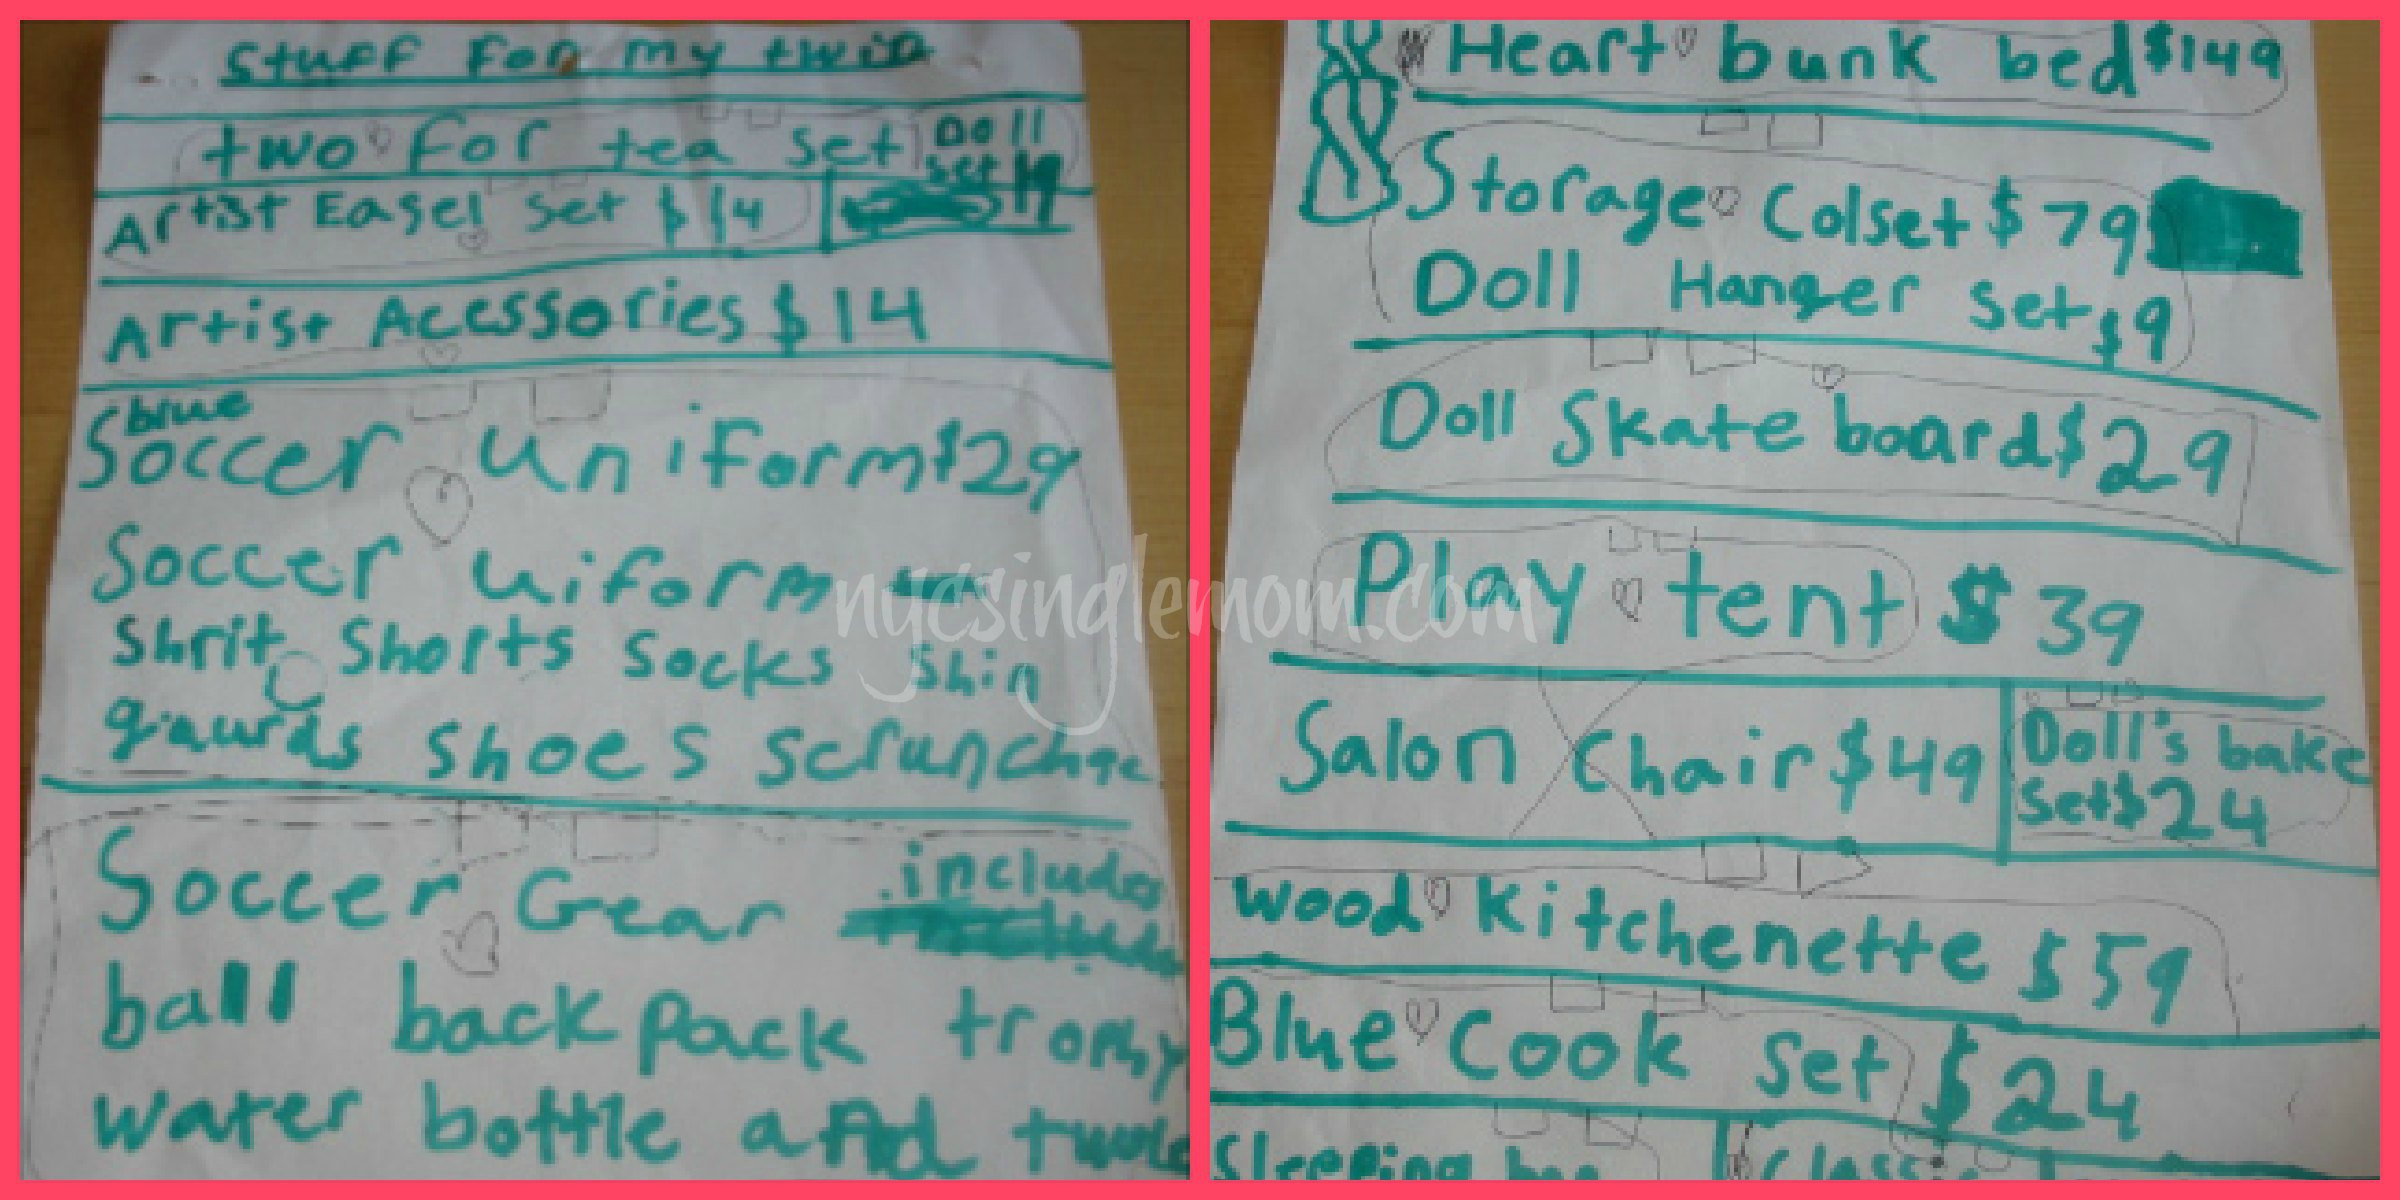 Stuff For my twin
two for tea set Doll set 19
Artist Easel set $14
Artist Acessories $14
blue
Soccer uniform $29
Soccer uiform
Shrit, Shorts socks shin
gaurds shoes scrunchae
Soccer Gear includes
ball backpack trophy
water bottle and
Heart bunk bed $149
Storage Colset $79
Doll Hanger set $9
Doll Skate board $29
Play tent $39
Salon Chair $49
Doll's bake
set $24
wood kitchenette $59
Blue Cook set $24
Sleeping
nycsinglemom.com